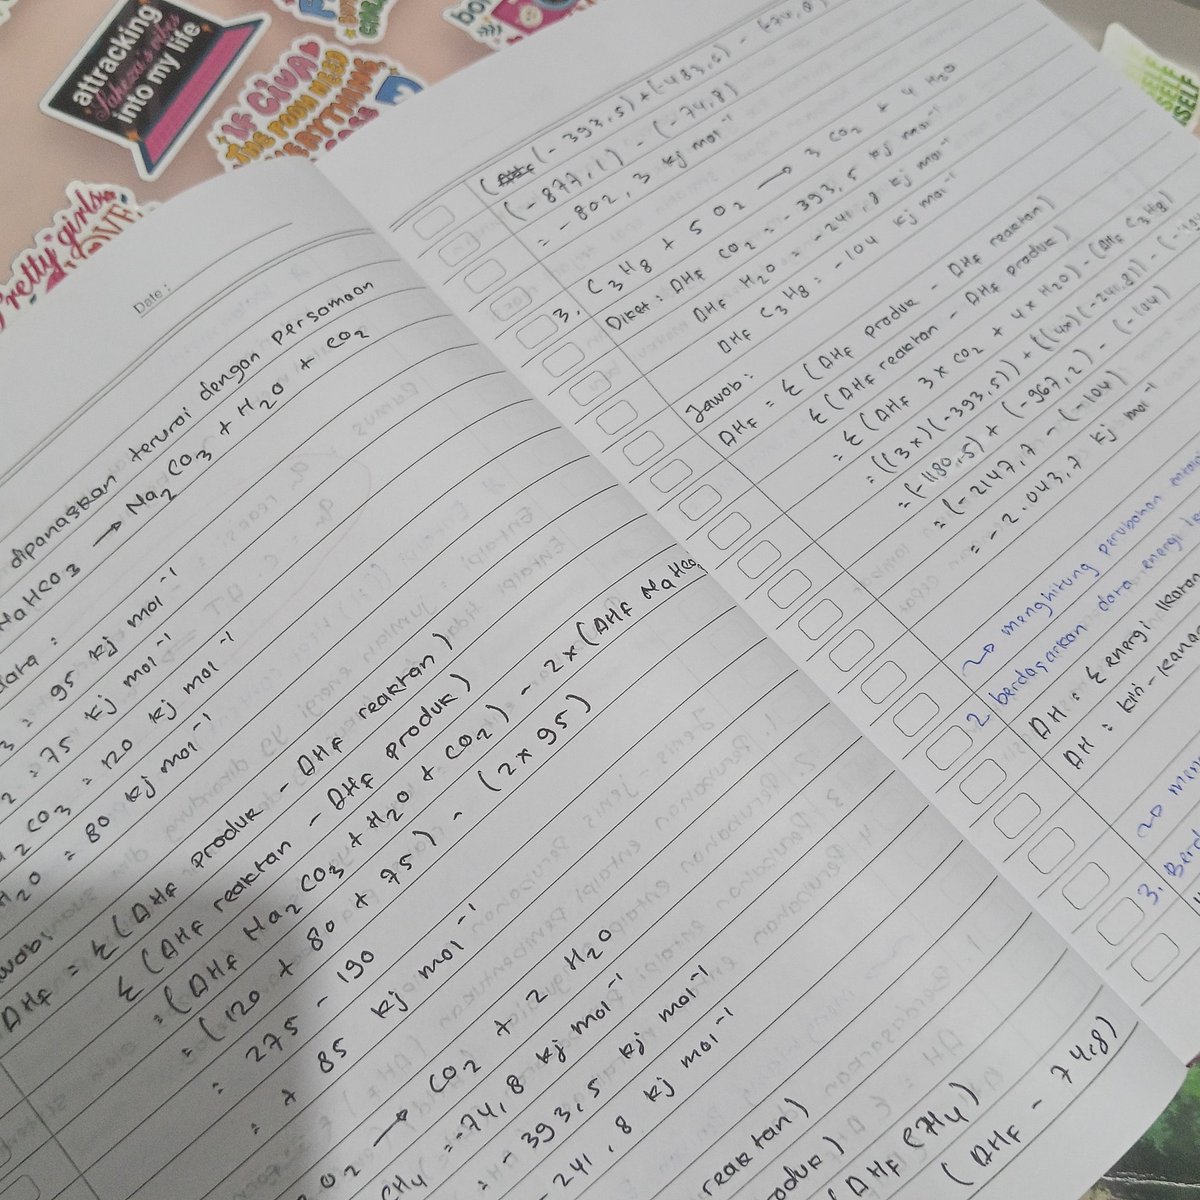 attracking
into my life
IF CIWA
THE POPU NEED
EVERYTHING
Pretty girls
Date :
dipanaskan terurai dengan persamaan
NaHCO3 → Na2CO3 + H2O + CO2
data :
= 95 kj mol⁻¹
= 75 kj mol⁻¹
2 CO3 = 120 kj mol⁻¹
H2O = 80 kj mol⁻¹
ΔHf = Σ(ΔHf produk - ΔHf reaktan)
Σ(ΔHf reaktan - ΔHf produk)
= (ΔHf Na2CO3 + H2O + CO2) - 2x(ΔHf NaHCO
= (120 + 80 + 75) - (2x95)
= 275 - 190
= + 85 kj mol⁻¹
O2 → CO2 + 2 H2O
CH4 = -74,8 kj mol⁻¹
= -393,5 kj mol⁻¹
- 241,8 kj mol⁻¹
reaktan)
produk)
(ΔHf CH4)
(ΔHf - 74,8)
(ΔHf (-393,5) + (-483,6) - (-74,8)
(-877,1) - (-74,8)
= -802,3 kj mol⁻¹
3. C3H8 + 5O2 → 3 CO2 + 4 H2O
Diket : ΔHf CO2 = -393,5 kj mol⁻¹
ΔHf H2O = -241,8 kj mol⁻¹
ΔHf C3H8 = -104 kj mol⁻¹
Jawab :
ΔHf = Σ(ΔHf produk - ΔHf reaktan)
Σ(ΔHf reaktan - ΔHf produk)
= Σ(ΔHf 3x CO2 + 4x H2O) - (ΔHf C3H8)
= ((3x)(-393,5)) + ((4x)(-241,8)) - (-
= (-1180,5) + (-967,2) - (-104)
= (-2147,7 - (-104)
= -2.043,7 kj mol⁻¹
~> menghitung perubahan
2 berdasarkan data energi
ΔH = Σ energi Ikatan
ΔH = kiri - kanan
3. Berd